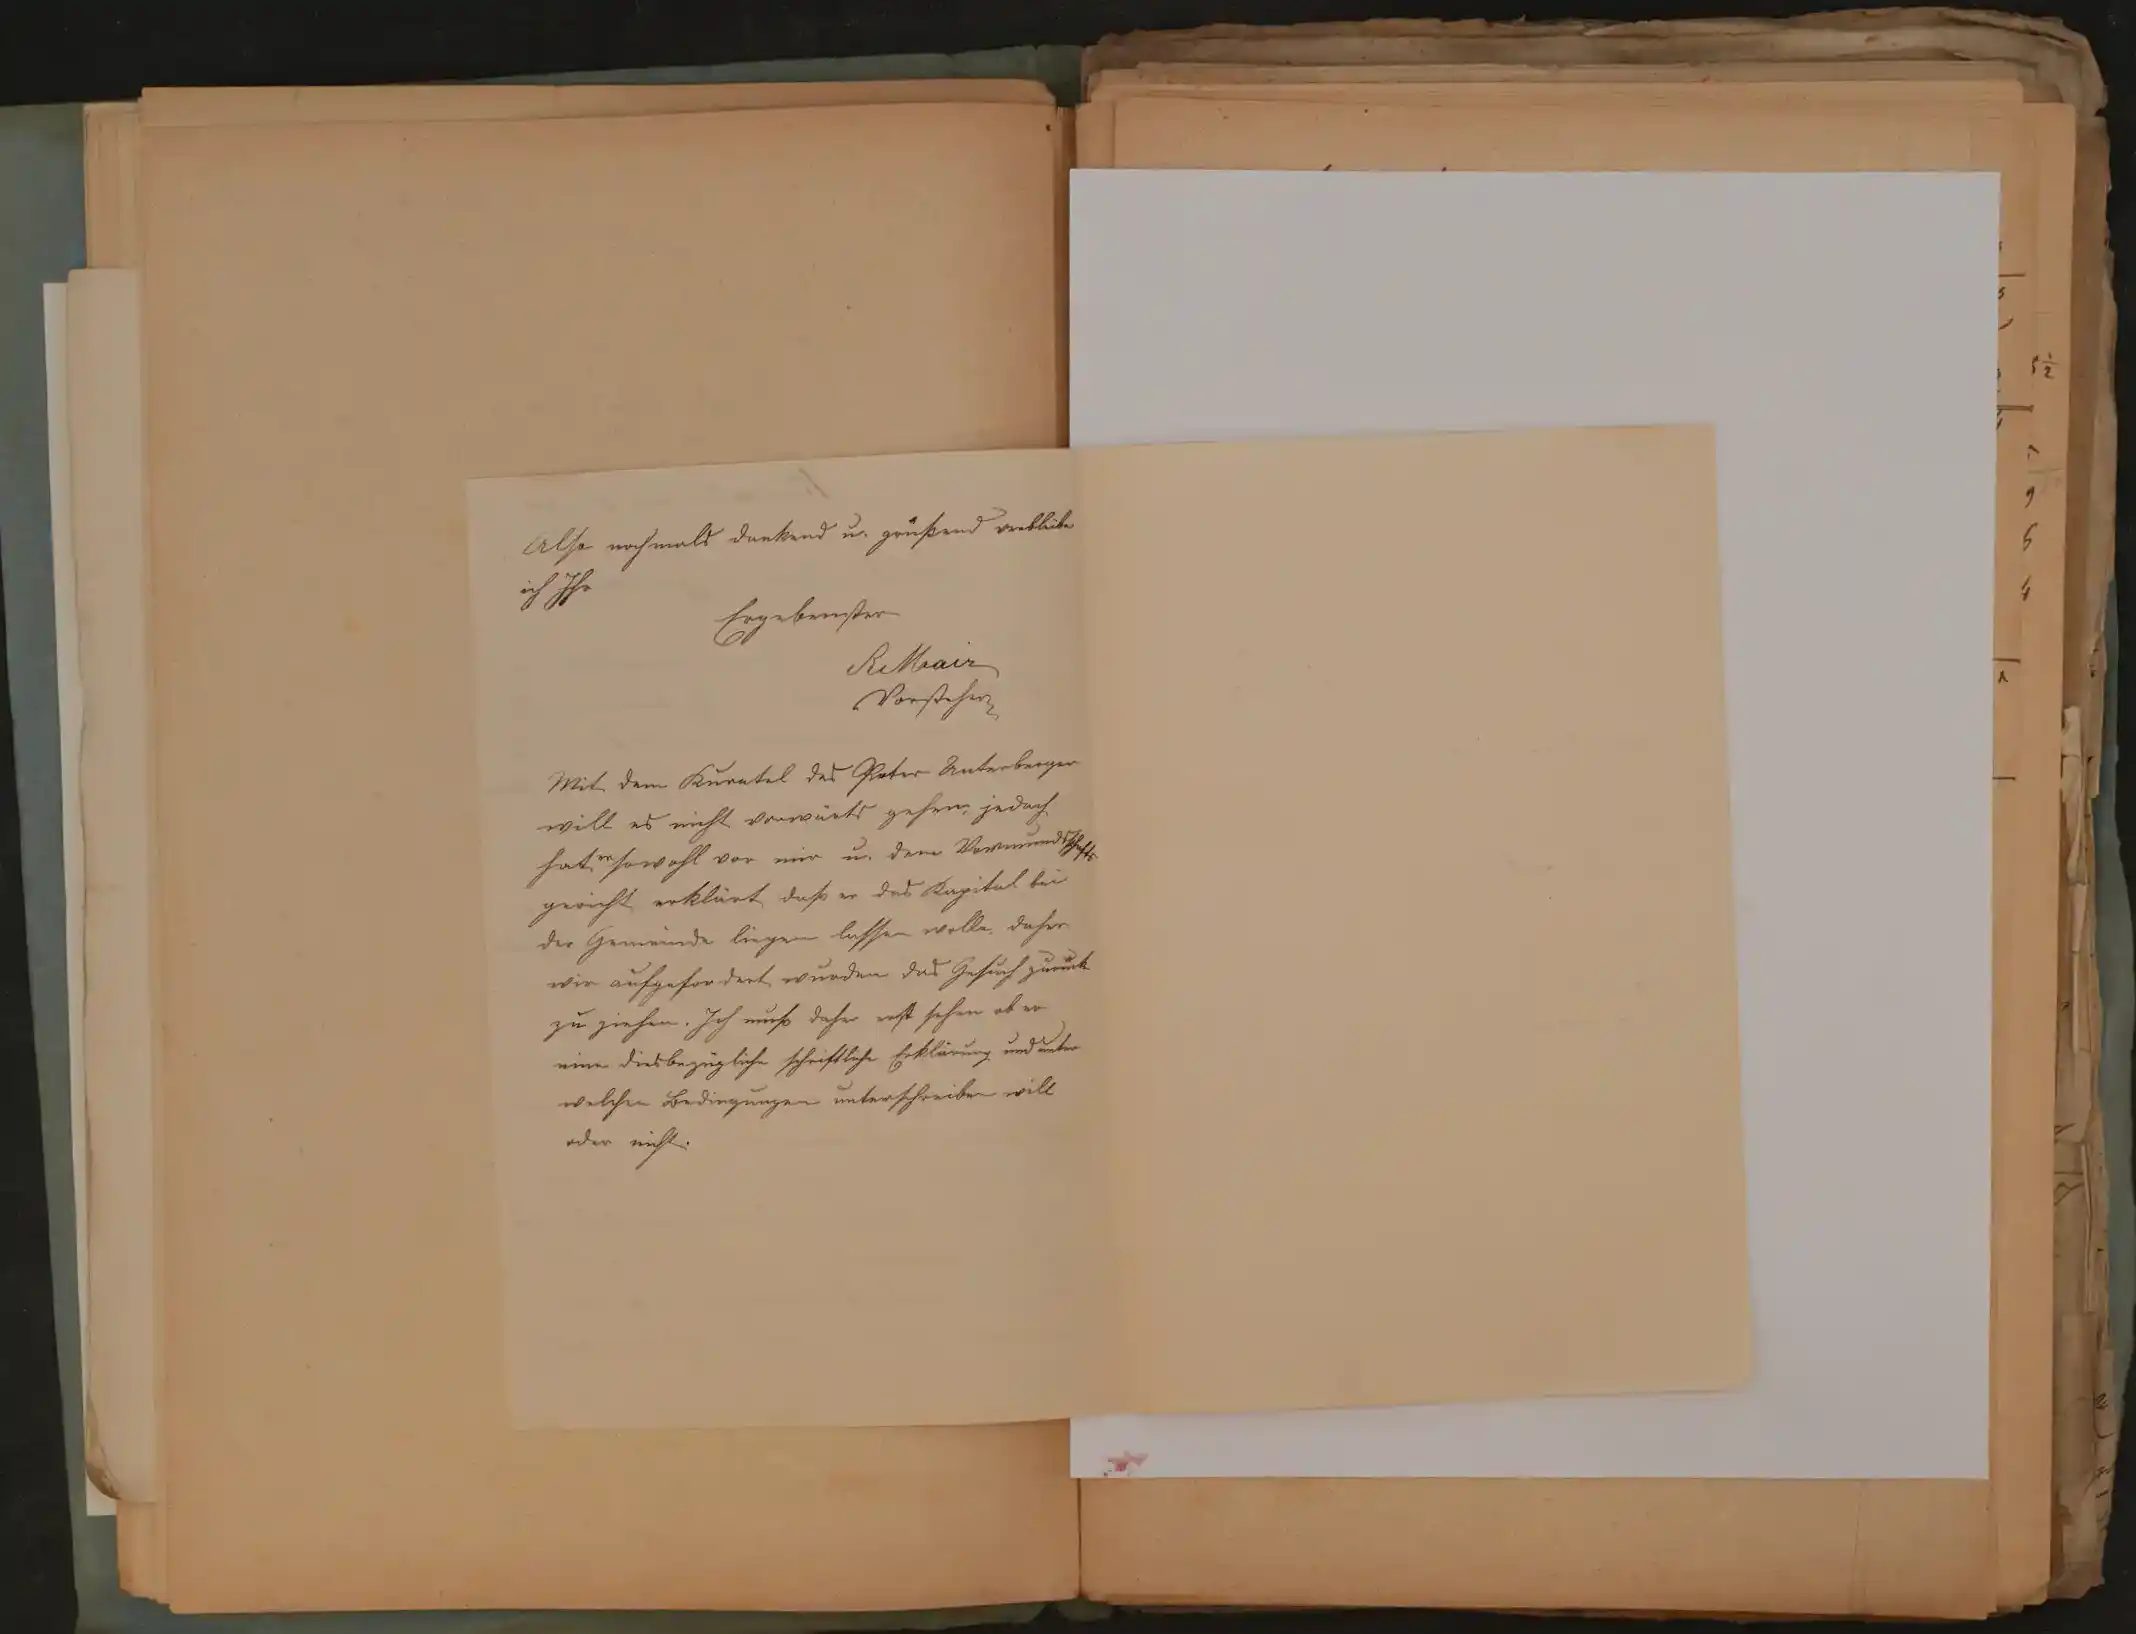 Also nochmals dankend u. grüßend verbleibe
ich Ihr
Ergebenster
Mair
Vorsteher
Mit dem Kuratel des Peter Unterberger
will es nicht vorwärts gehen, jedoch
hat er sowohl vor mir u. dem Vormundschafts
gericht erklärt daß er das Kapital bei
der Gemeinde liegen lassen wolle. daher
wir aufgefordert wurden das Gesuch zurück
zu ziehen. Ich muß daher erst sehen ob er
eine diesbezügliche schriftliche Erklärung und unter
welchen Bedingungen unterschreiben will
oder nicht.
5 1/2
9
6
4